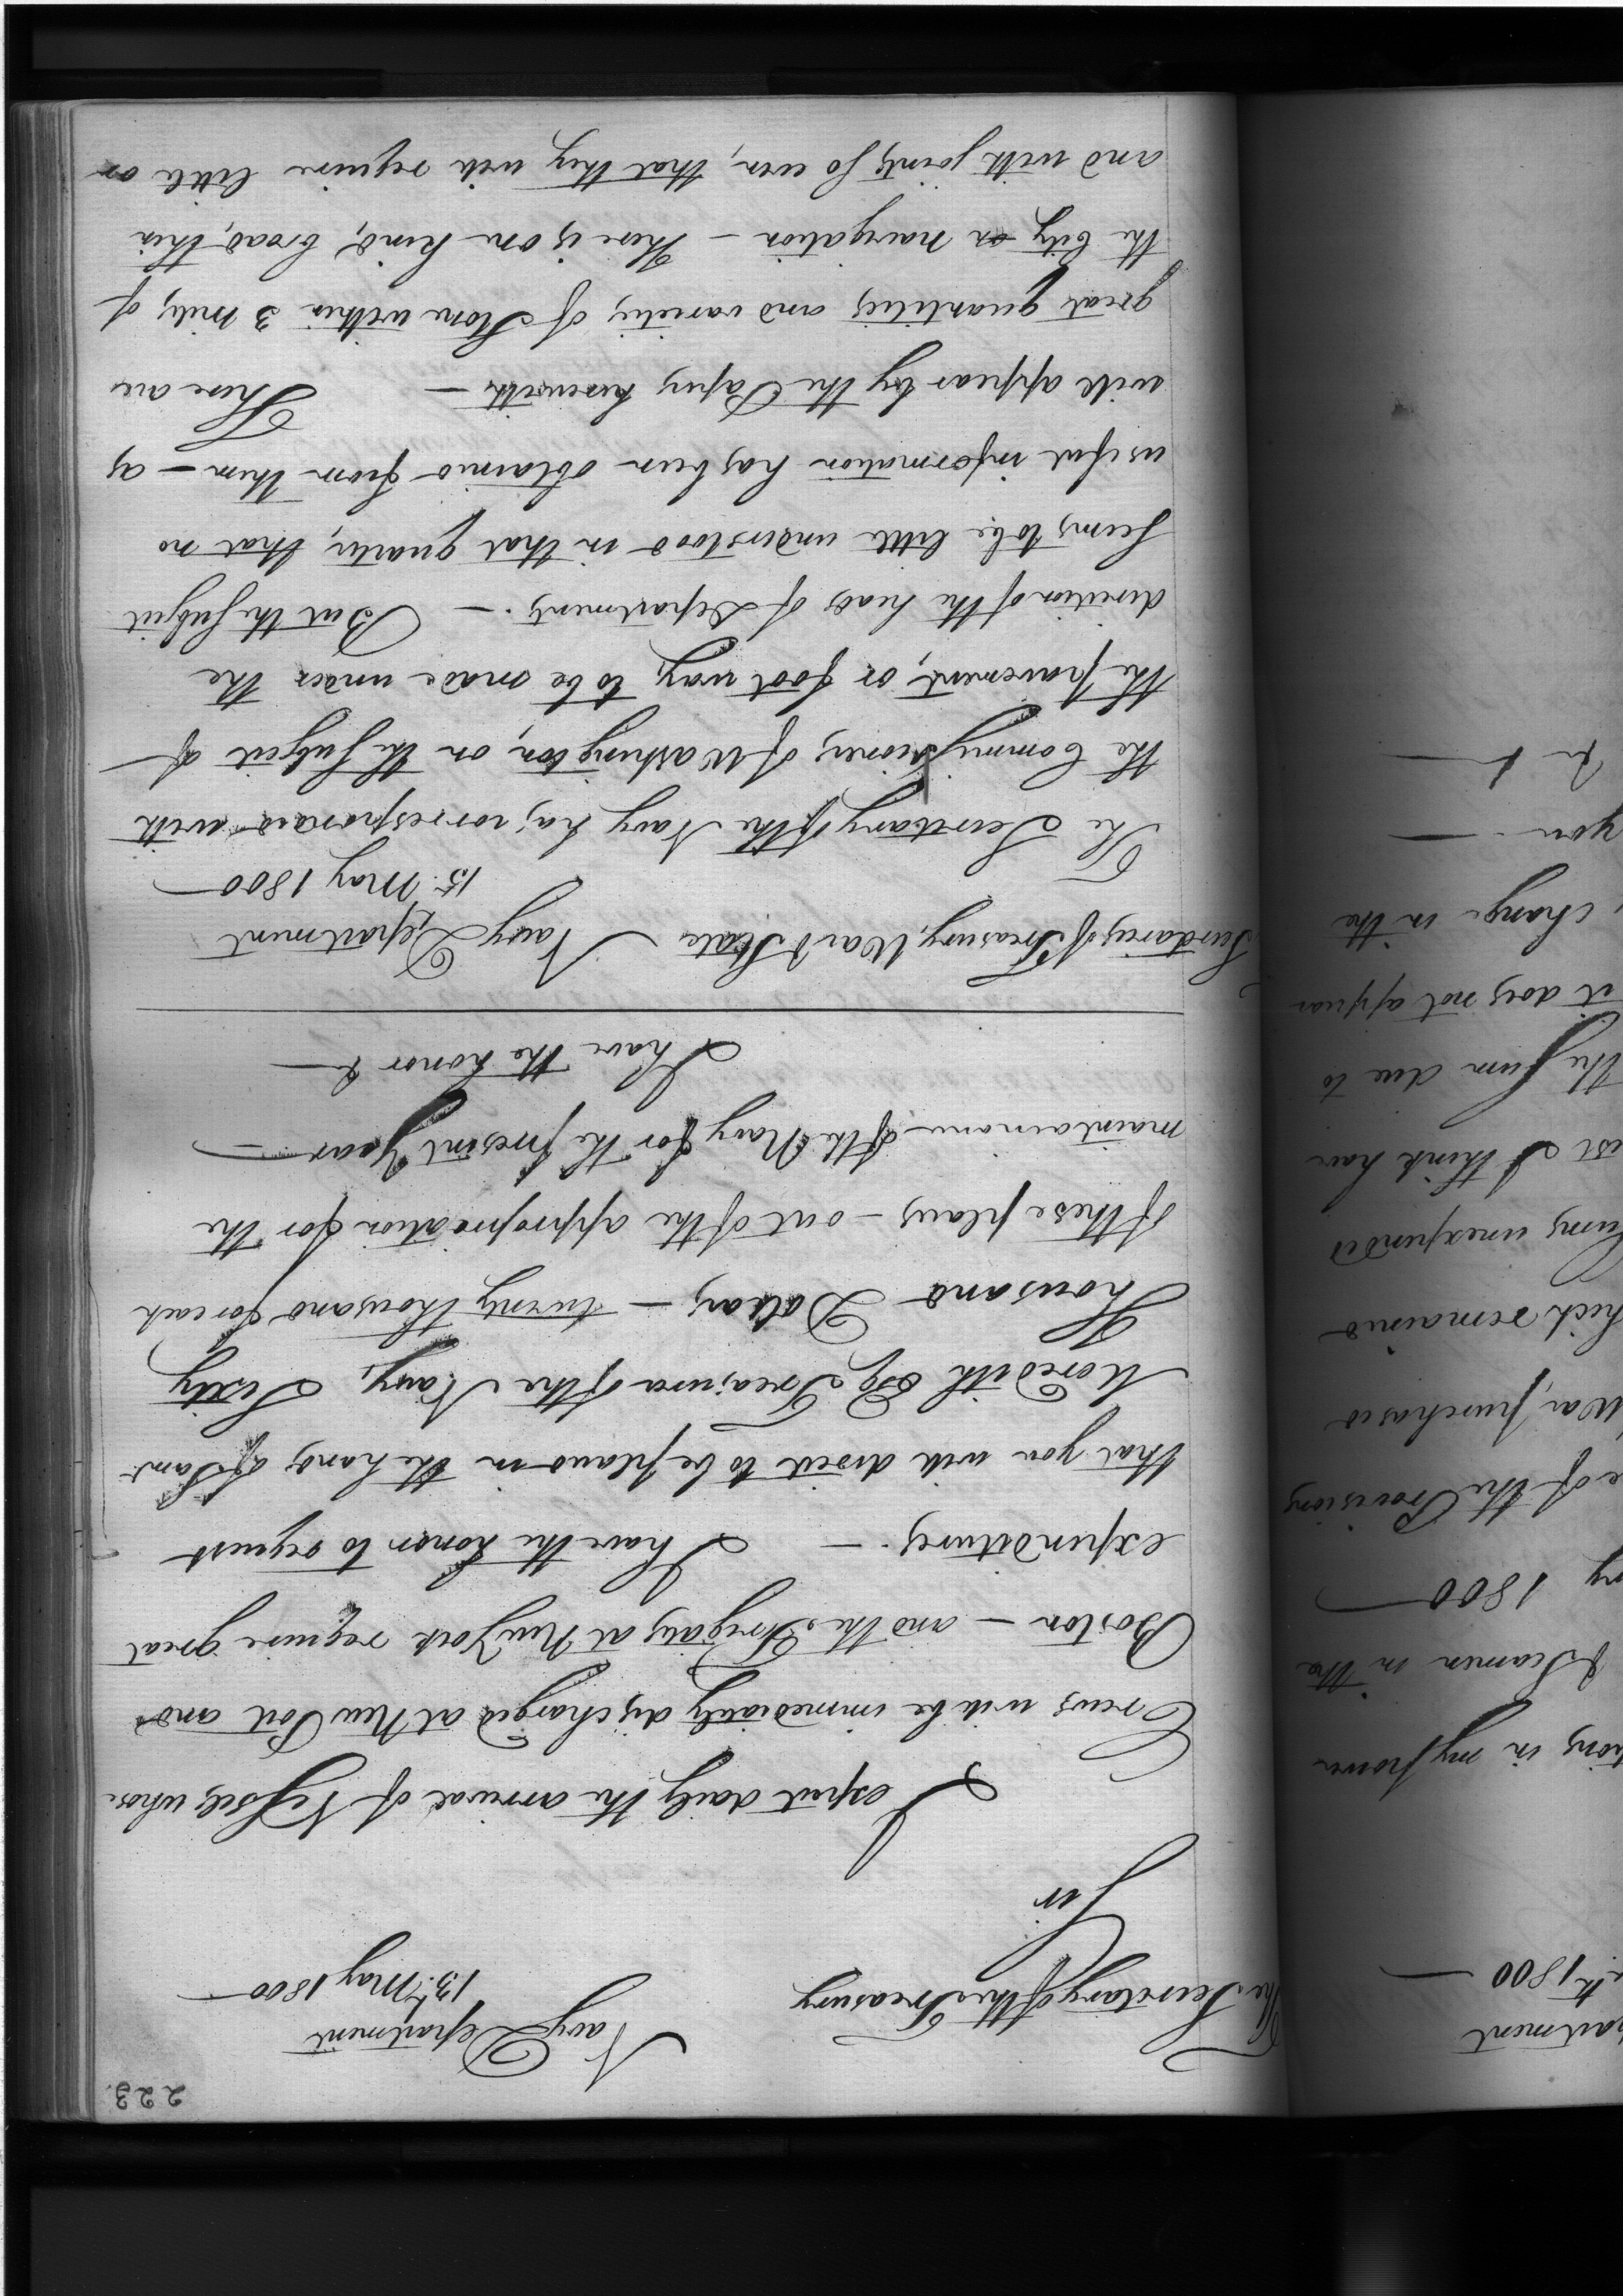 223.
The Secretary of the Treasury
Navy Department
13th May 1800
Sir
I expect daily the arrival of Vessels, whose
Crews will be immediately discharged at New Port and
Boston — and the Frigates at New York require great
expenditures. — I have the honor to request
that you will direct to be placed in the hands of Saml
Meredith Esq Treasurer of the Navy, Sixty
Thousand Dollars — twenty thousand for each
of these places — out of the appropriation for the
maintainance of the Navy for the present Year —
I have the honor &
Secretaries of Treasury, War & State
Navy Department
15. May 1800
The Secretary of the Navy has corresponded with
the Commissioners of Washington, on the Subject of
the pavement, or foot way, to be made under the
direction of the heads of Department. — But the Subject
seems to be little understood in that quarter, that no
useful information has been obtained from them — as
will appear by the Papers herewith — There are
great quantities and varieties of Stone within 3 miles of
the City or navigation — There is one kind, broad, thin
and with joints so even, that they will require little or
partment
1800
in my power
& Seamen in the
1800
of the Provisions
War, purchased
remained
unexpended
I think have
the sum due to
it does not appear
change in the
you